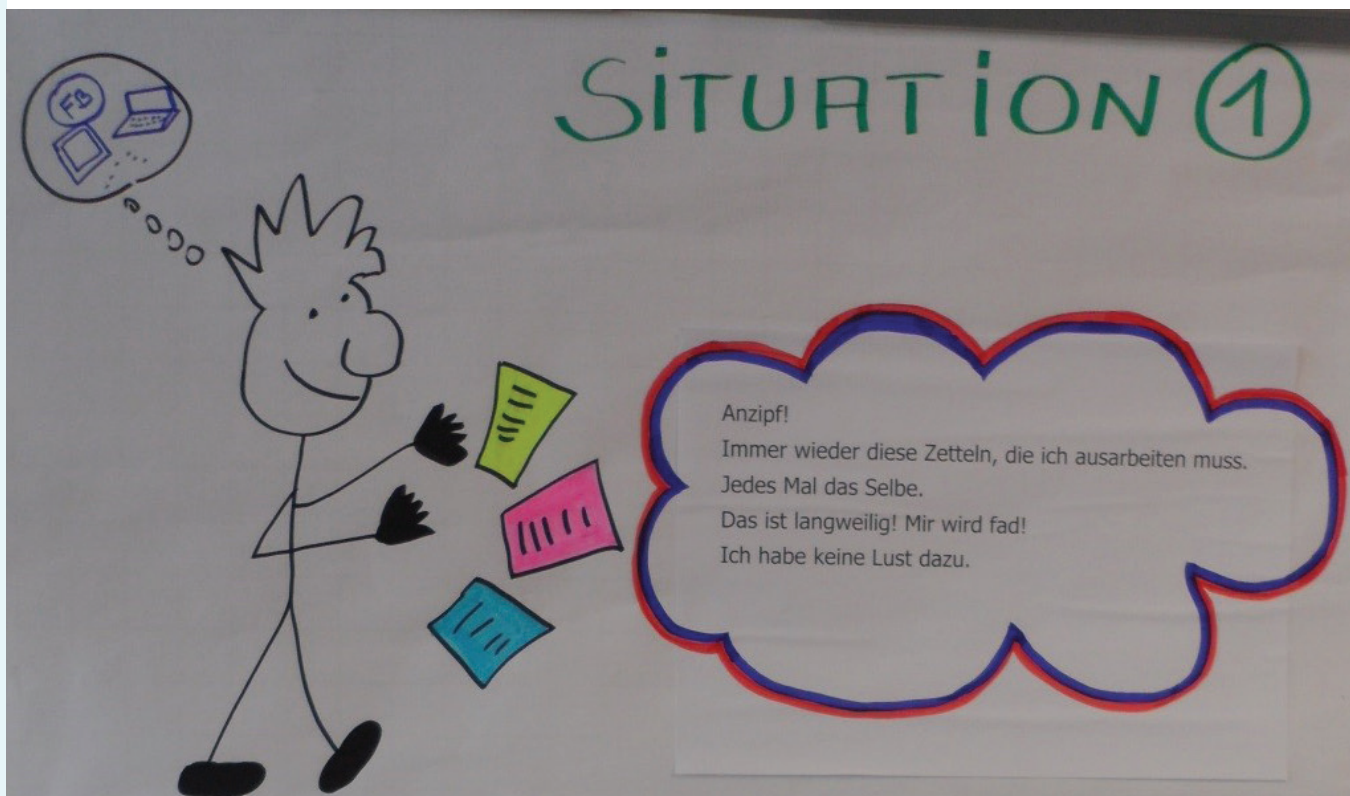 SITUATION 1
FB
Anzipf!
Immer wieder diese Zetteln, die ich ausarbeiten muss.
Jedes Mal das Selbe.
Das ist langweilig! Mir wird fad!
Ich habe keine Lust dazu.